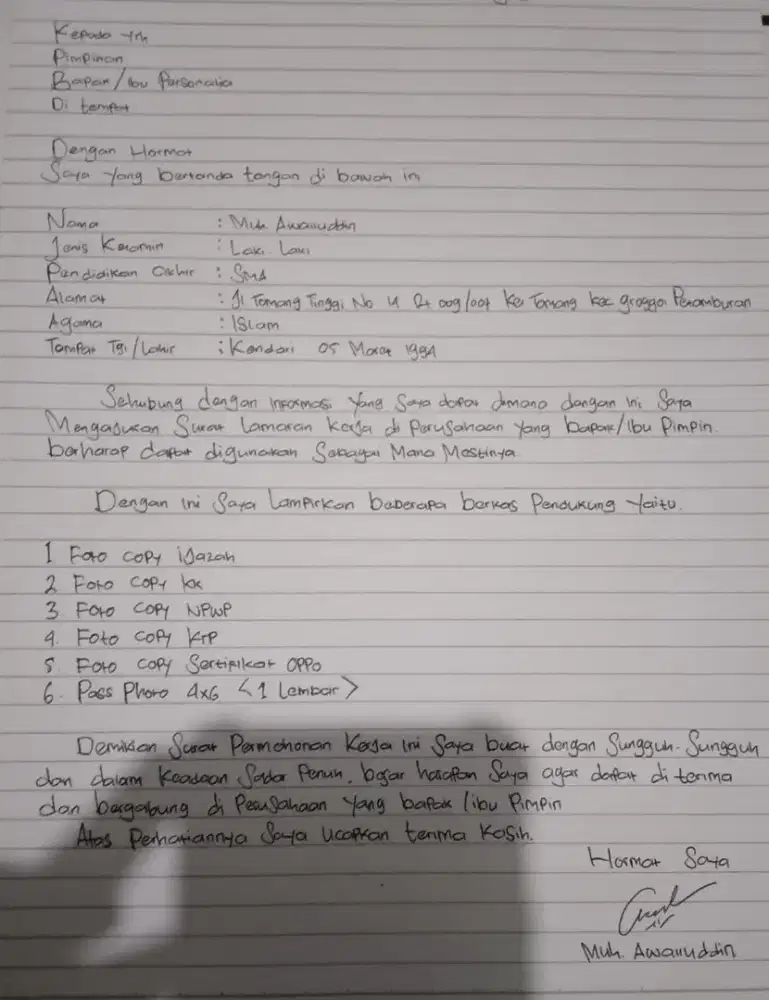 Kepada Yth
Pimpinan
Bapak/Ibu Personalia
Di tempat
Dengan Hormat
Saya Yang bertanda tangan di bawah ini
Nama : Muh. Awaluddin
Jenis Kelamin : Laki-Laki
Pendidikan Akhir : SMA
Alamat : Jl Tomang Tinggi No 4 Rt 009/004 Kel Tomang Kec grogol Petamburan
Agama : ISLam
Tempat Tgl/Lahir : Kendari 05 Maret 1994
Sehubung dengan informasi Yang Saya dapat dimana dengan ini Saya
Mengajukan Surat Lamaran Kerja di Perusahaan Yang bapak/Ibu Pimpin.
berharap dapat digunakan Sebagai Mana Mestinya.
Dengan ini Saya Lampirkan beberapa berkas Pendukung Yaitu.
1 Foto COPY iJazah
2 Foto COPY KK
3 Foto COPY NPWP
4. Foto COPY KTP
5. Foto COPY Sertifikat OPPO
6. Pass Photo 4x6 <1 Lembar>
Demikian Surat Permohonan Kerja ini Saya buat dengan Sungguh-Sungguh
dan dalam Keadaan Sadar Penuh. besar harapan Saya agar dapat di terima
dan bergabung di Perusahaan Yang bapak/ibu Pimpin
Atas Perhatiannya Saya Ucapkan terima Kasih.
Hormat Saya
Muh. Awaluddin